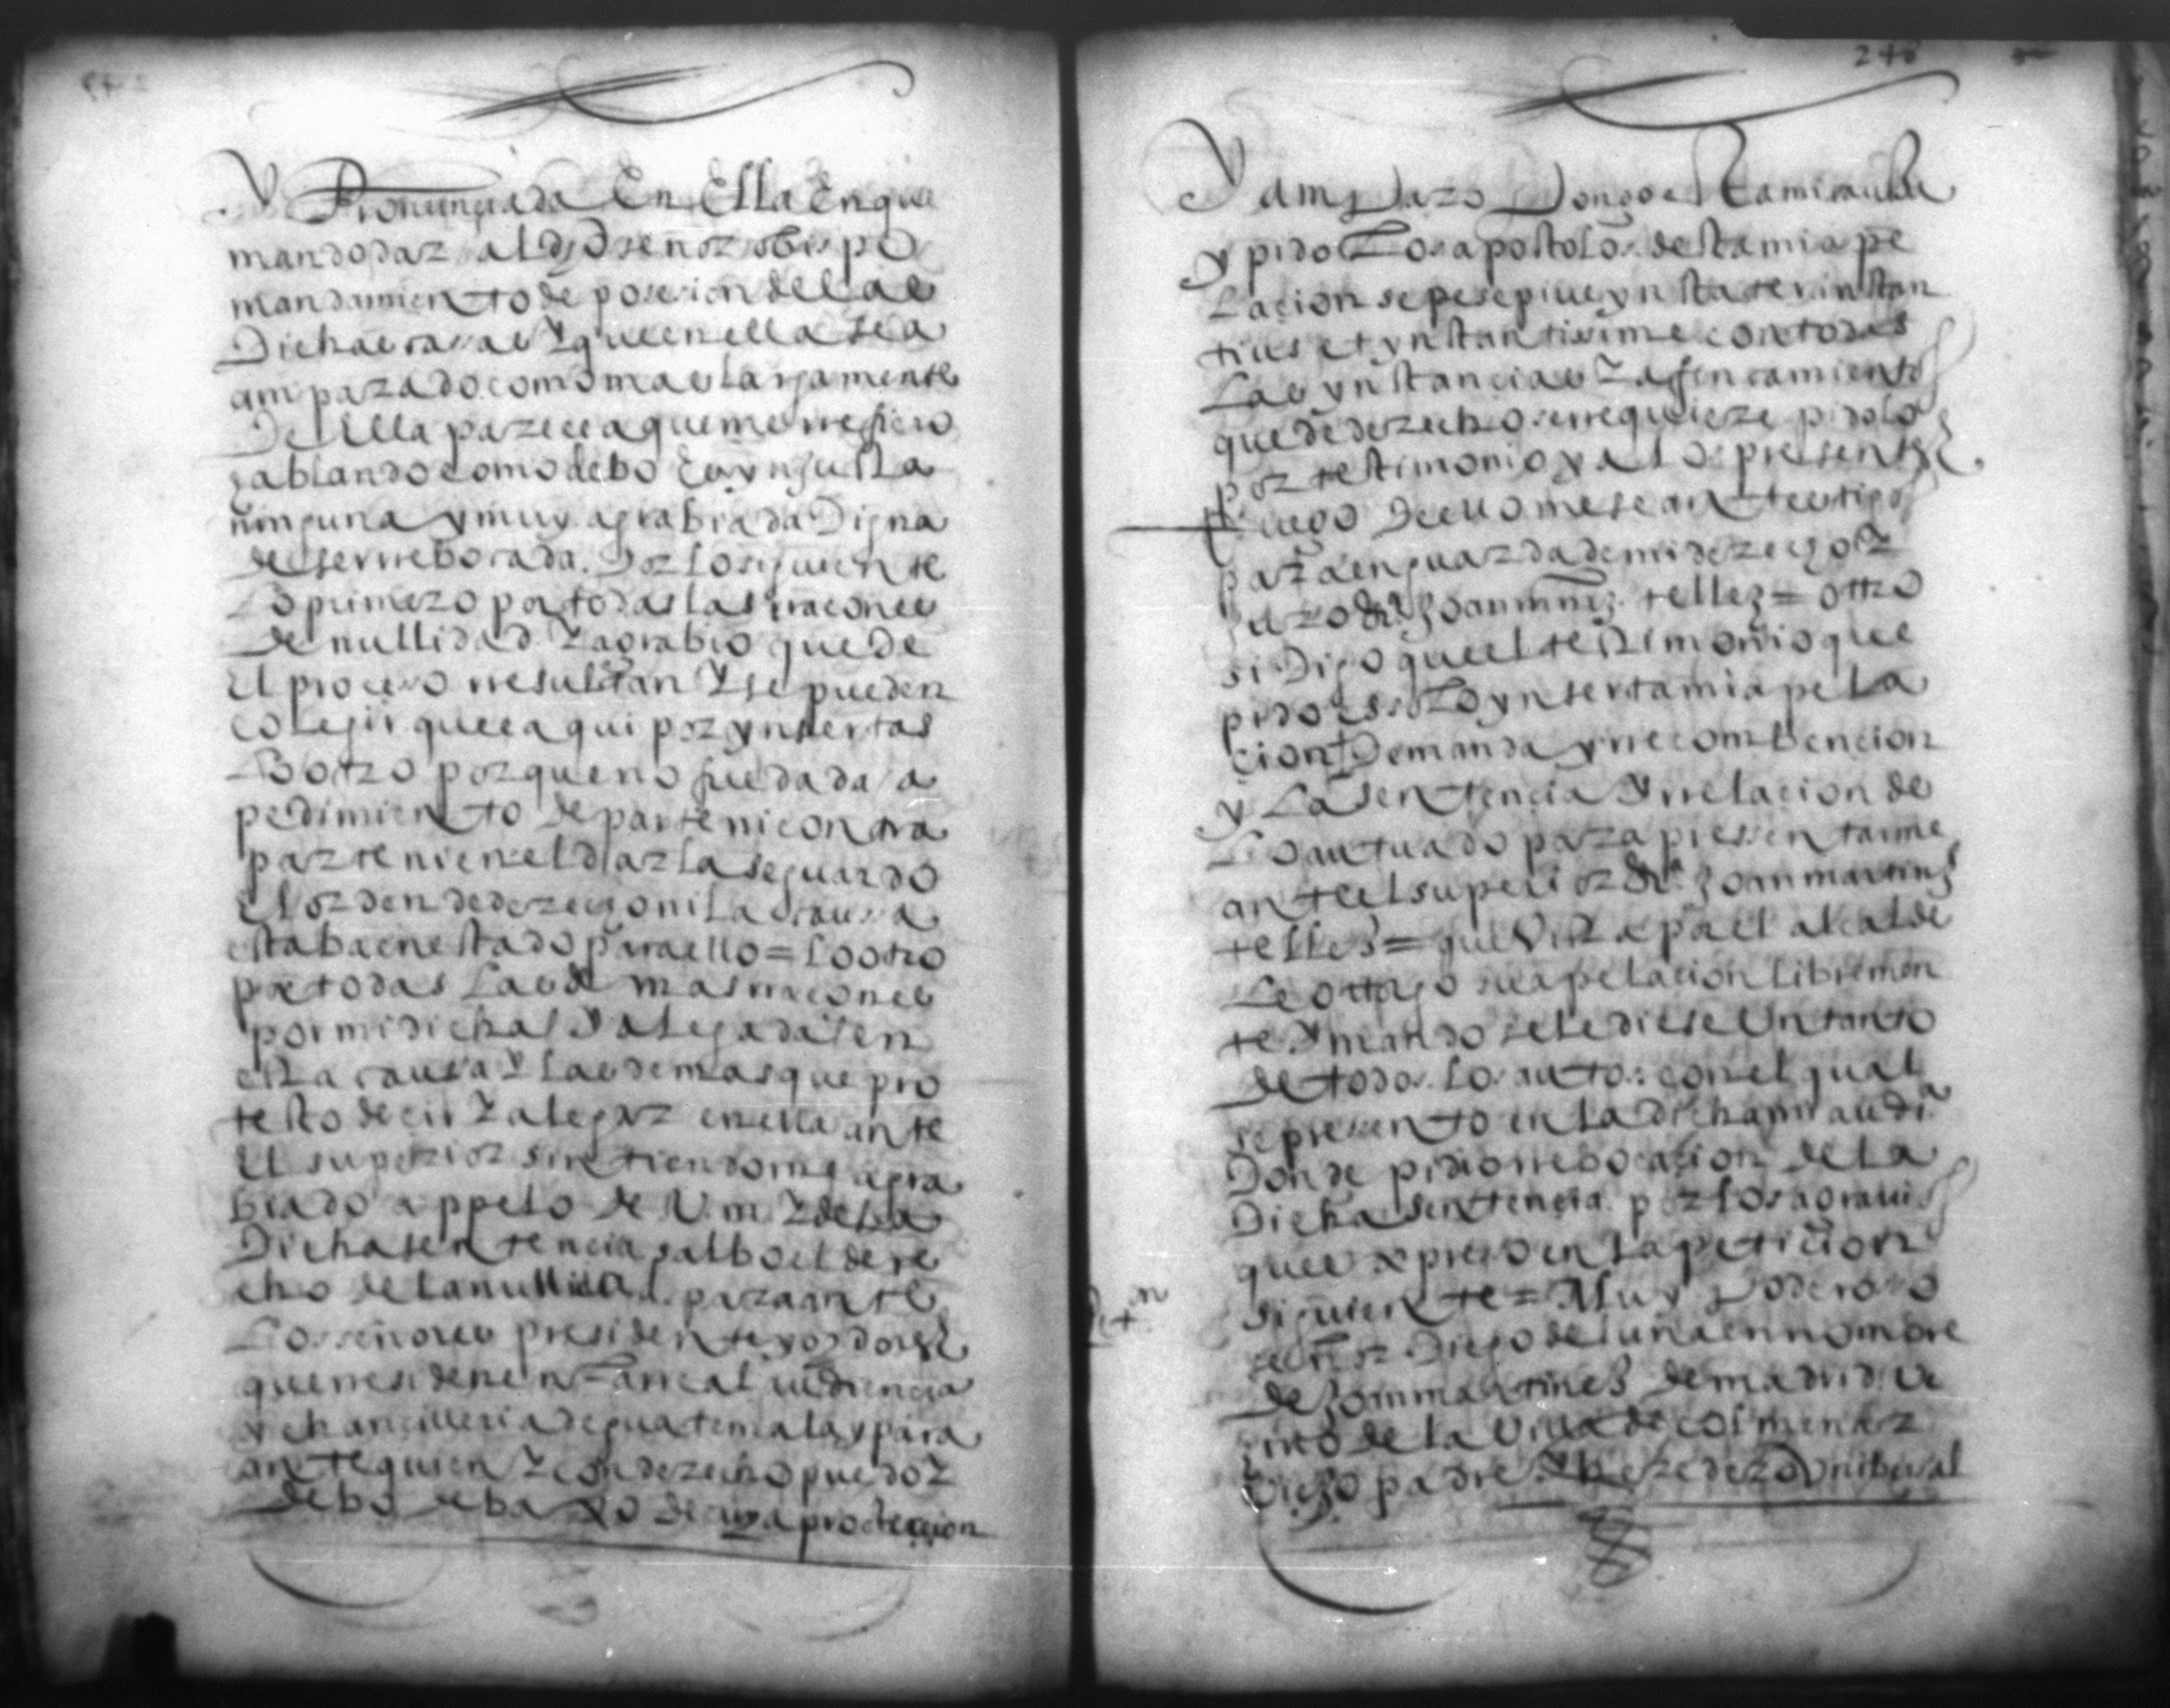 y Pronunciada En Ella En que
mando dar al dho señor obispo
mandamiento de posesion de las
Dichas casas y que en ella sea
amparado como mas largamente
De Ella parece a que me rrefiero
hablando como debo Es ynjusta
ninguna y muy agrabiada Digna
de ser rrebocada. Por lo siguiente
Lo primero por todas las rraçones
de nullidad y agrabio que de
el proceso rresultan y se pueden
colegir que e aqui por ynsertas
Lo otro porque no fue dada a
pedimiento de parte ni contra
parte ni en el dar la se guardo
el orden de derecho ni la causa
estaba en estado para ello = Lo otro
por todas las demas rraçones
por mi dichas y alegadas en
esta causa y las demas que pro
testo decir y alegar en ella ante
el superior sintiendome agra
biado appelo de V m y de la
Dicha sentencia salbo el dere
cho de la nullidad para ante
Los señores presidente y oydores
que rresiden en la rreal audiencia
y chancilleria de guatemala y para
ante quien y con derecho puedo y
debo debaxo de cuya proteccion
248
Y amparo Pongo Esta mi causa
y pido Los apostolos desta mi ape
lacion sepe sepius ynstanter instan
tius et ynstantisime con todas
Las ynstancias y afincamientos
que de derecho se rrequiere pidolo
por testimonio y a los presentes
Ruego De ello me sean testigos
para en guarda de mi derecho y
juro Joan mrnez tellez = otro
si Digo que el testimonio que
pido es Lo ynserta mi apela
cion Demanda y rrecombencion
y La sentencia y rrelacion de
Lo autuado para presentarme
ante el superior Joan martines
telles = que Vista por el alcalde
Le otorgo la apelacion libremen
te y mando se le diese Un tanto
de todos los autos con el qual
se presento en la dicha mi audia
Donde pidio rrebocacion de la
Dicha sentencia por los agravios
que expreso en la peticion
Peton
siguiente = Muy Poderoso
señor Diego de luna en nombre
de Joan martines de madrid ve
cino de la Villa de colmenar
Viejo padre y heredero Unibersal